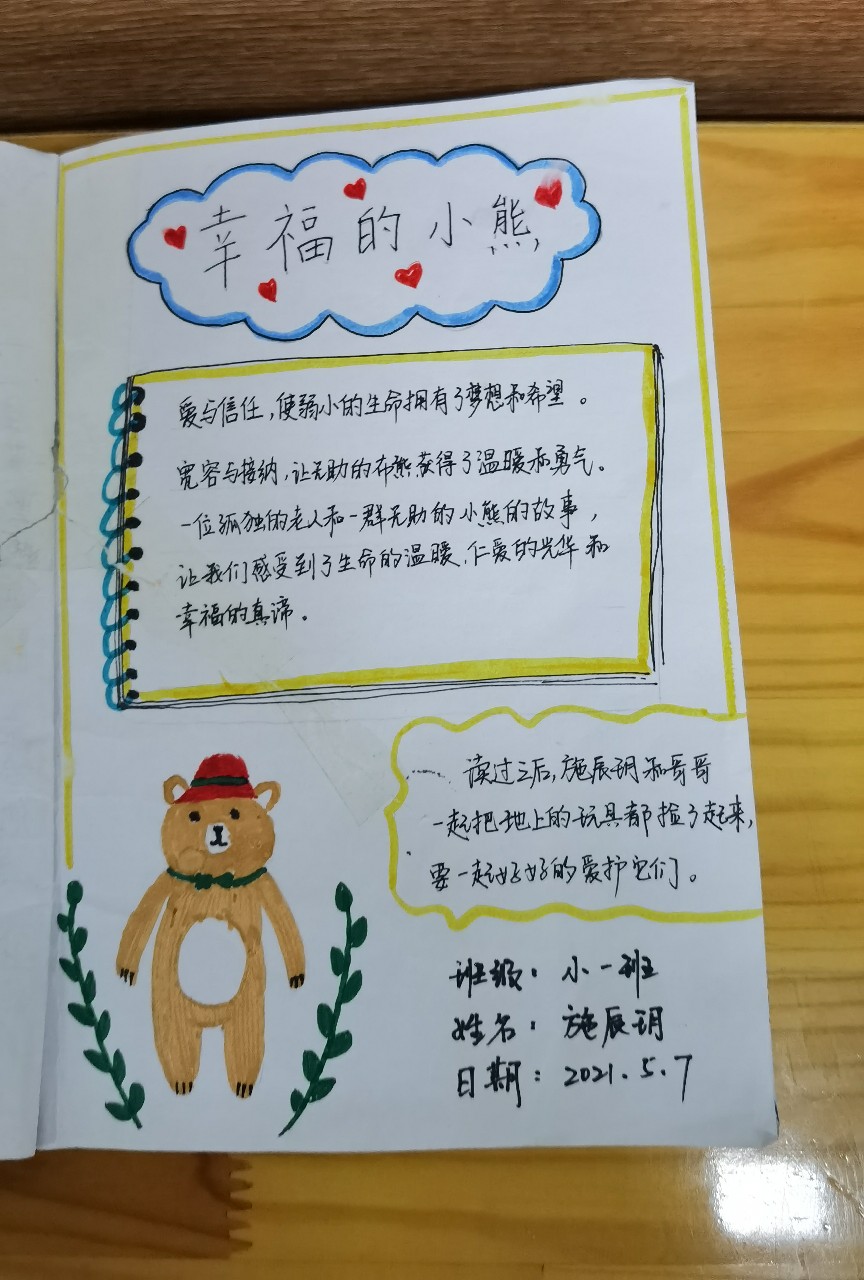 幸福的小熊
爱与信任,使弱小的生命拥有了梦想和希望。
宽容与接纳,让无助的布熊获得了温暖和勇气。
一位孤独的老人和一群无助的小熊的故事,
让我们感受到了生命的温暖,仁爱的光华和
幸福的真谛。
读过之后,施辰玥和哥哥
一起把地上的玩具都捡了起来,
要一起好好的爱护它们。
班级:小一班
姓名:施辰玥
日期:2021.5.7